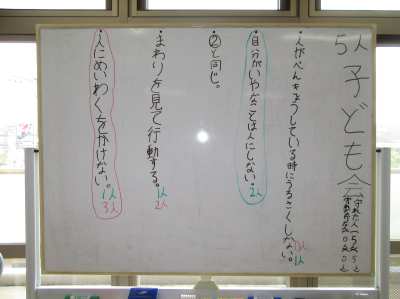 5人 子ども会
守れた人 5人
・人がべんきょうしている時にうろさくしない。
1人
・自分がいやなことは人にしない。2人
・②と同じ。
・まわりを見て行動する。1人
2人
・人にめいわくをかけない。1人
3人